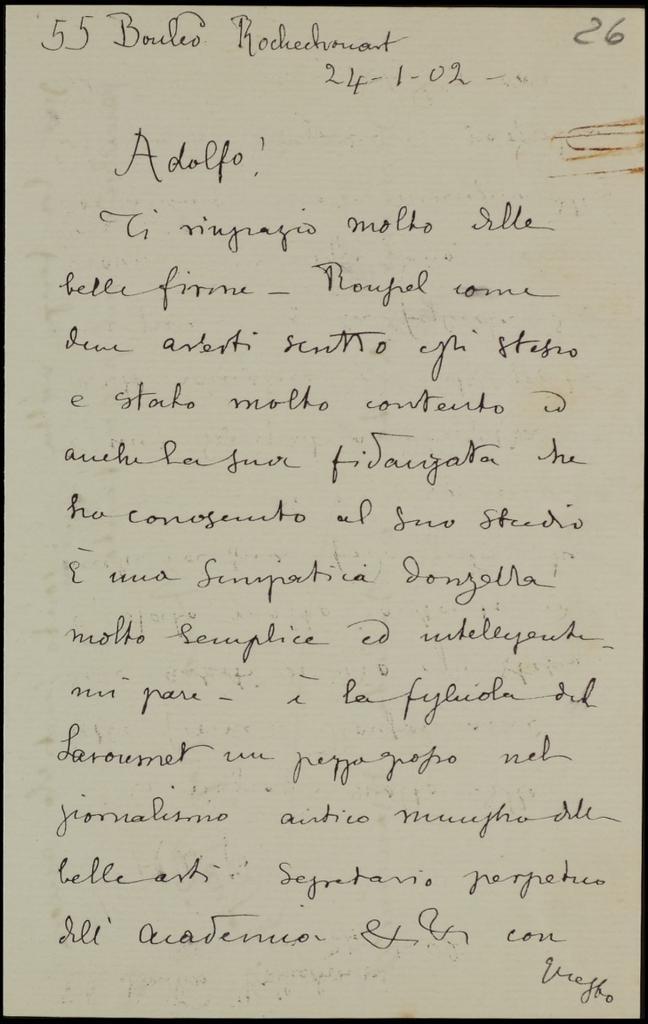 26
55 Boulev Rochechouart
24-1-02-
Adolfo!
Ti ringrazio molto delle
belle firme - Roussel come
deve averti scritto egli stesso
e stato molto contento ed
anche la sua fidanzata che
ho conosciuto al suo studio
È una simpatica donzella
molto semplice ed intelligente
mi pare - è la figliuola del
Larroumet un pezzo grosso nel
giornalismo antico membro delle
belle arti Segretario perpetuo
dell' Academia & & con